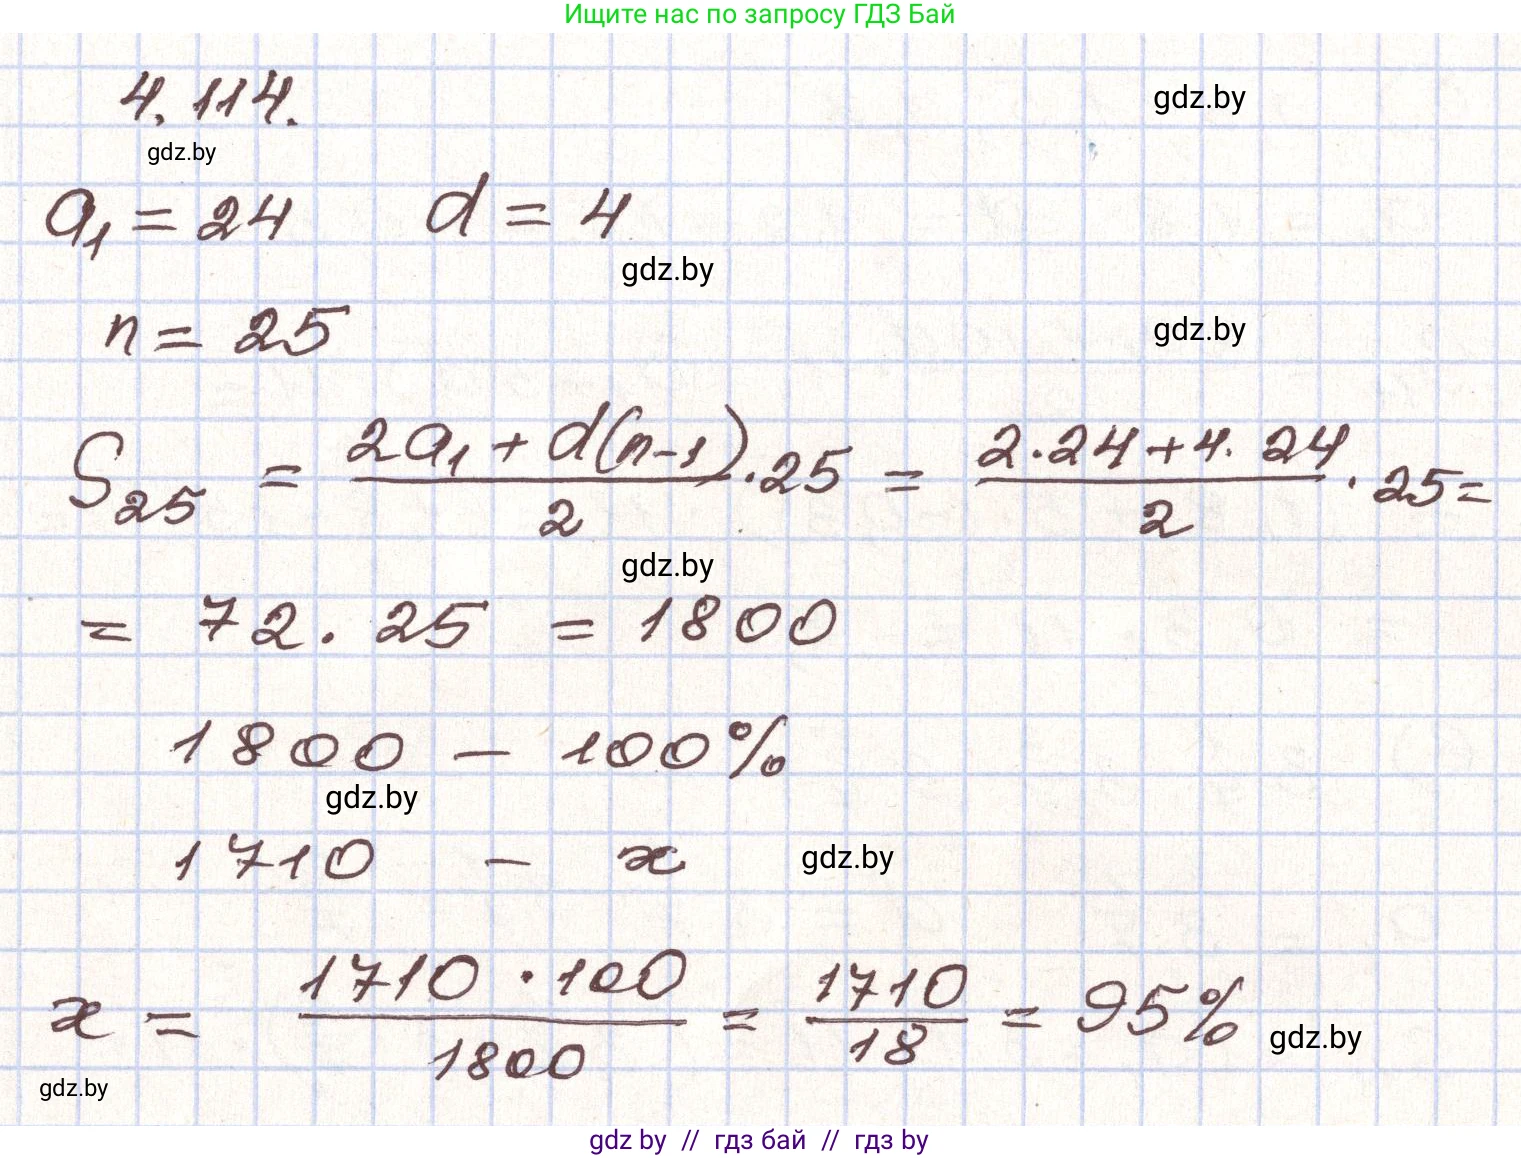 Ищите нас по запросу ГДЗ Бай
4.114.
gdz.by
gdz.by
a₁ = 24 d = 4
gdz.by
n = 25
gdz.by
S₂₅ = (2a₁ + d(n-1))/2 · 25 = (2·24 + 4·24)/2 · 25 =
gdz.by
= 72 · 25 = 1800
1800 – 100%
gdz.by
1710 – x
gdz.by
x = (1710 · 100)/1800 = 1710/18 = 95%
gdz.by
gdz.by
gdz by // гдз бай // гдз by